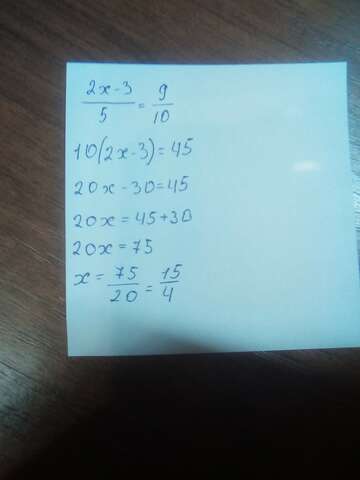 2x-3/5 = 9/10
10(2x-3)=45
20x-30=45
20x=45+30
20x=75
x=75/20=15/4